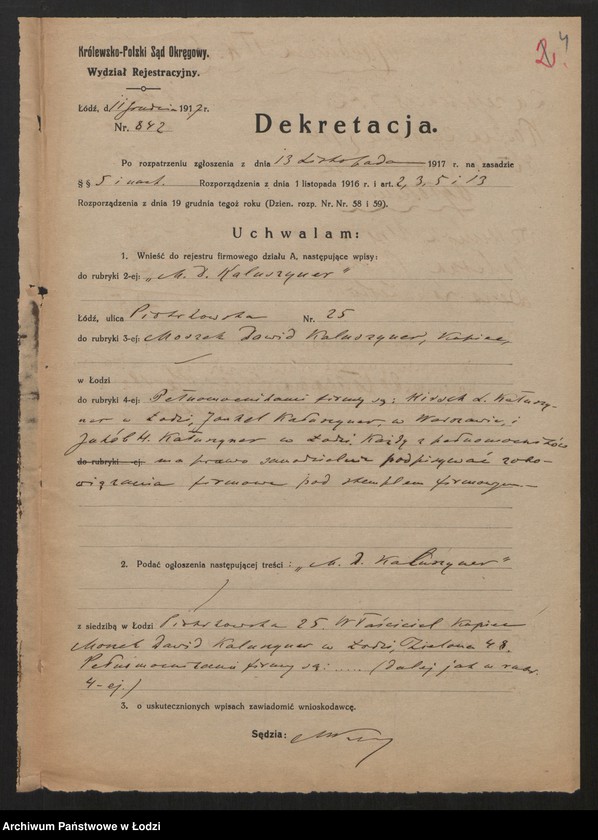 4
2.
Królewsko-Polski Sąd Okręgowy.
Wydział Rejestracyjny.
Łódź, d. 11 grudnia 1917 r.
Nr. 842
Dekretacja.
Po rozpatrzeniu zgłoszenia z dnia 13 Listopada 1917 r. na zasadzie
§ § 5 i nast. Rozporządzenia z dnia 1 listopada 1916 r. i art. 2, 3, 5 i 13
Rozporządzenia z dnia 19 grudnia tegoż roku (Dzien. rozp. Nr. Nr. 58 i 59).
Uchwalam:
1. Wnieść do rejestru firmowego działu A, następujące wpisy:
do rubryki 2-ej: „M. D. Kałuszyner"
Łódź, ulica Piotrkowska Nr. 25
do rubryki 3-ej: Moszek Dawid Kałuszyner, Kupiec,
w Łodzi
do rubryki 4-ej: Pełnomocnikami firmy są: Hirsch L. Kałuszy-
ner w Łodzi, Jankel Kałuszyner, w Warszawie, i
Jakób H. Kałuszyner w Łodzi. Każdy z pełnomocników
do rubryki -ej: ma prawo samodzielnie podpisywać zobo-
wiązania firmowe pod stemplem firmowym
2. Podać ogłoszenia następującej treści: „M. D. Kałuszyner"
z siedzibą w Łodzi Piotrkowska 25. Właściciel Kupiec
Moszek Dawid Kałuszyner w Łodzi, Zielona 48.
Pełnomocnikami firmy są: ..... (dalej jak w rubr.
4-ej.)
3. o uskutecznionych wpisach zawiadomić wnioskodawcę.
Sędzia:
Archiwum Państwowe w Łodzi